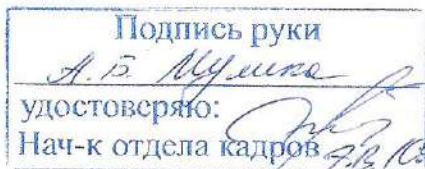 Подпись руки
А. Б. Мулика
удостоверяю:
Нач-к отдела кадров